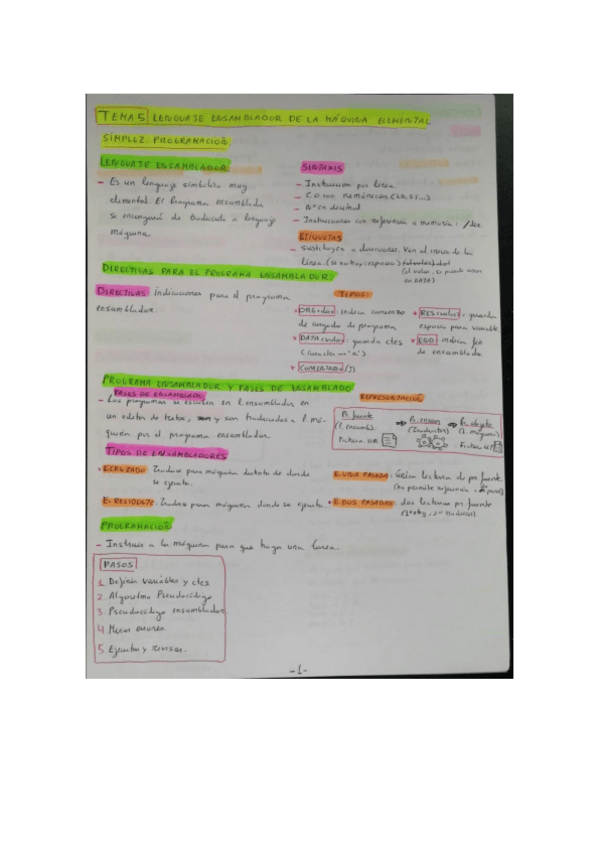 TEMA 5 LENGUAJE ENSAMBLADOR DE LA MÁQUINA ELEMENTAL
SÍMPLEZ. PROGRAMACIÓN
LENGUAJE ENSAMBLADOR
- Es un lenguaje simbólico muy
elemental. El Programa ensamblador
se encargará de traducirlo a lenguaje
máquina.
SINTAXIS
- Instrucción por línea.
- C.O con nemónicos (LD, ST...).
- Nº en decimal
- Instrucciones con referencia a memoria: /dir
ETIQUETAS
- sustituyen a direcciones. Van al inicio de la
línea.
(el valor, se puede usar
en DATA)
DIRECTIVAS PARA EL PROGRAMA ENSAMBLADOR:
DIRECTIVAS indicaciones para el programa
ensamblador.
TIPOS:
ORG : indica comienzo
de cargado de programa
DATA : guarda ctes
(caracteres "a")
COMENTARIO (;)
RES : guarda
espacio para variable
END indica fin
de ensamblado.
PROGRAMA ENSAMBLADOR Y FASES DE ENSAMBLADO
FASES DE ENSAMBLADO
- Los programas se escriben en l.ensamblador en
un editor de textos, y son traducidos a l. má-
quina por el programa ensamblador.
REPRESENTACIÓN
P. fuente ⇒ P. ensam ⇒ P. objeto
(l. ensamb) (traductor) (l. máquina)
TIPOS DE ENSAMBLADORES
E CRUZADO Traduce para máquina distinta de donde
se ejecuta.
E. RESIDENTE: Traduce para máquina donde se ejecuta
E. UNA PASADA: única lectura de p. fuente
E. DOS PASADAS: dos lecturas p. fuente
PROGRAMACIÓN
- Instruir a la máquina para que haga una tarea.
PASOS
1. Definir variables y ctes
2. Algoritmo Pseudocódigo
3. Pseudocódigo ensamblador
4.
5. Ejecutar y revisar.
-1-